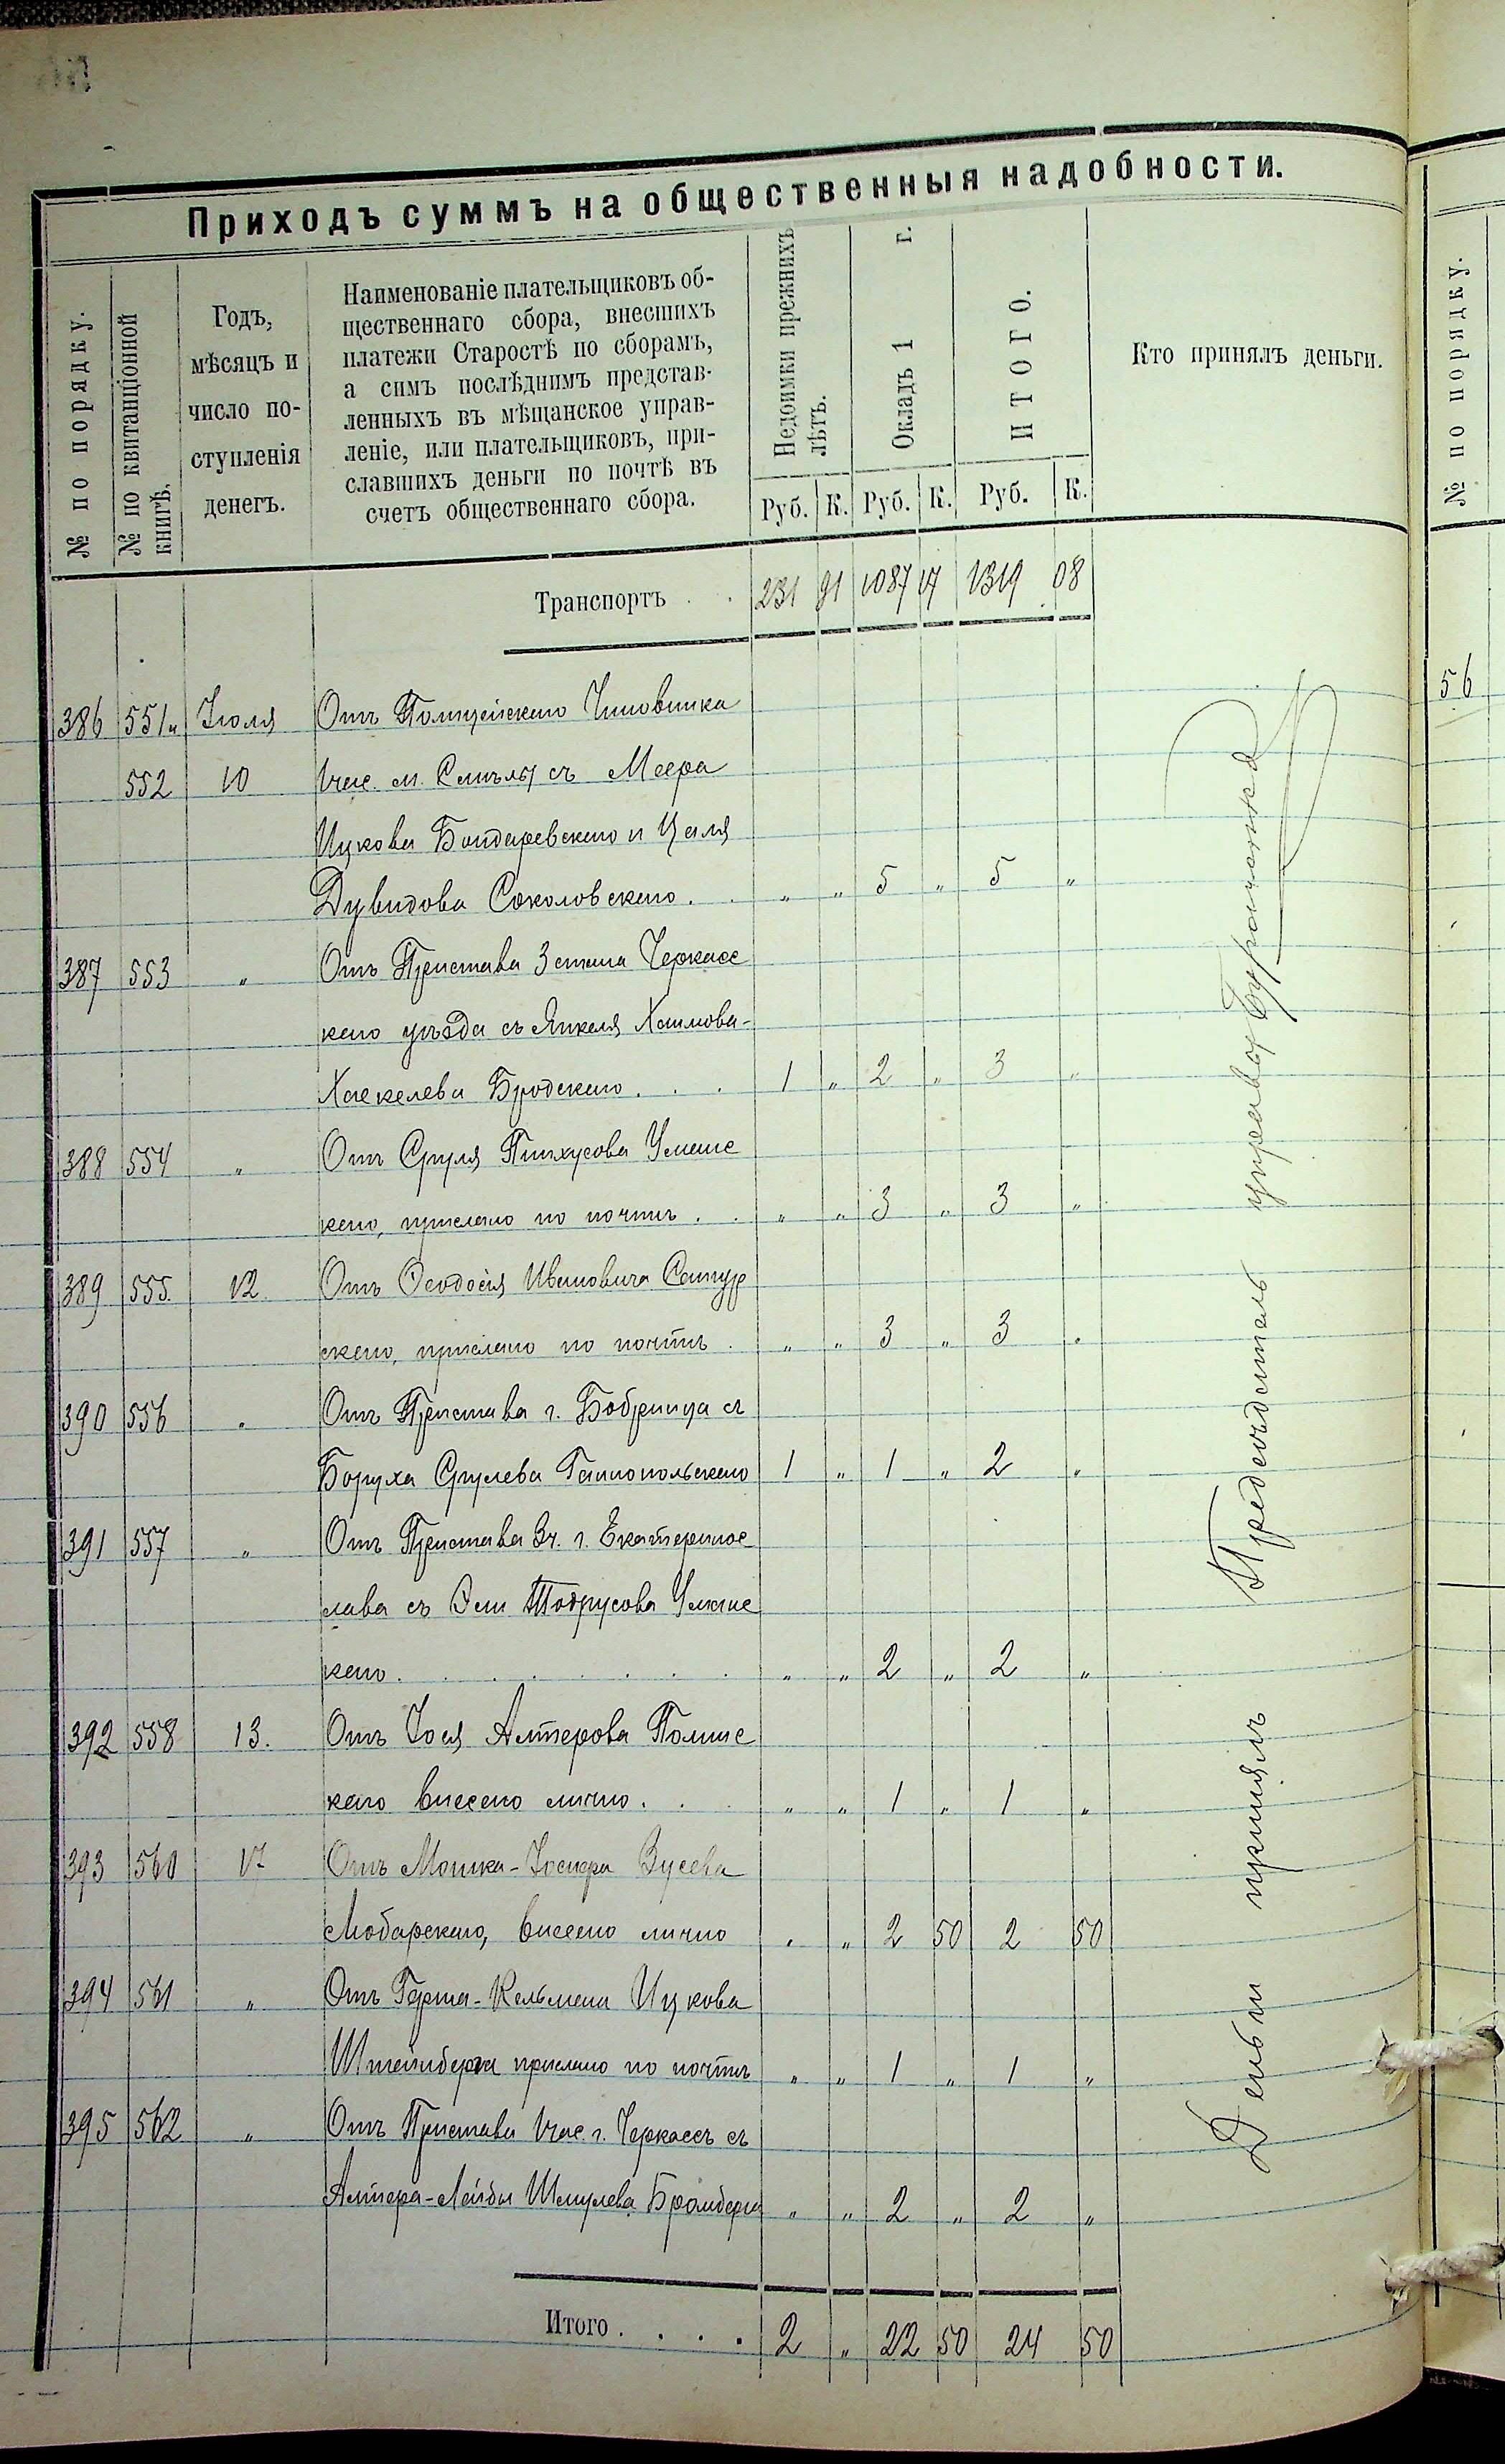 Приходъ суммъ на общественныя надобности.
№ по порядку.
№ по квитанціонной книгѣ.
Годъ,
мѣсяцъ и
число по-
ступленія
денегъ.
Наименованіе плательщиковъ об-
щественнаго сбора, внесшихъ
платежи Старостѣ по сборамъ,
а симъ послѣднимъ представ-
ленныхъ въ мѣщанское управ-
леніе, или плательщиковъ, при-
славшихъ деньги по почтѣ въ
счетъ общественнаго сбора.
Недоимки прежнихъ лѣтъ.
Окладъ 1 г.
ИТОГО.
Кто принялъ деньги.
Руб. К. Руб. К. Руб. К.
Транспортъ . . 231 91 1087 17 1319 08
386 551 и Іюля Отъ Полицейскаго Чиновника
552 10 1 час. м. Смѣлы съ Меера
Ицкова Бондаревскаго и Целя
Дувидова Соколовскаго . . " " 5 " 5 "
387 553 " Отъ Пристава 3 стана Черкасс
каго уѣзда съ Янкеля Хаимова-
Хаскелева Бродскаго . . . 1 " 2 " 3 "
388 554 " Отъ Сруля Пинхусова Уманс
каго, прислано по почтѣ . . " " 3 " 3 "
389 555. 12 Отъ Ѳеодосія Ивановича Сатур
скаго, прислано по почтѣ . " " 3 " 3 "
390 556 " Отъ Пристава г. Бобринца съ
Боруха Срулева Тальнопольскаго 1 " 1 " 2 "
391 557 " Отъ Пристава 3 ч. г. Екатеринос
лава съ Эли Тодрусова Уманс
каго . . . . . . . " " 2 " 2 "
392 558 13. Отъ Іося Алтерова Полинс
каго внесено лично . . . " " 1 " 1 "
393 560 17 Отъ Мошка-Іоспера Зусева
Любарскаго, внесено лично " " 2 50 2 50
394 561 " Отъ Герша-Кельмана Ицкова
Штейнберга прислано по почтѣ " " 1 " 1 "
395 562 " Отъ Пристава 1 час. г. Черкассъ съ
Алтера-Лейбы Шмулева Бромберга " " 2 " 2 "
Итого . . . . 2 " 22 50 24 50
Деньги принялъ Предсѣдатель управы
№ по порядку.
56